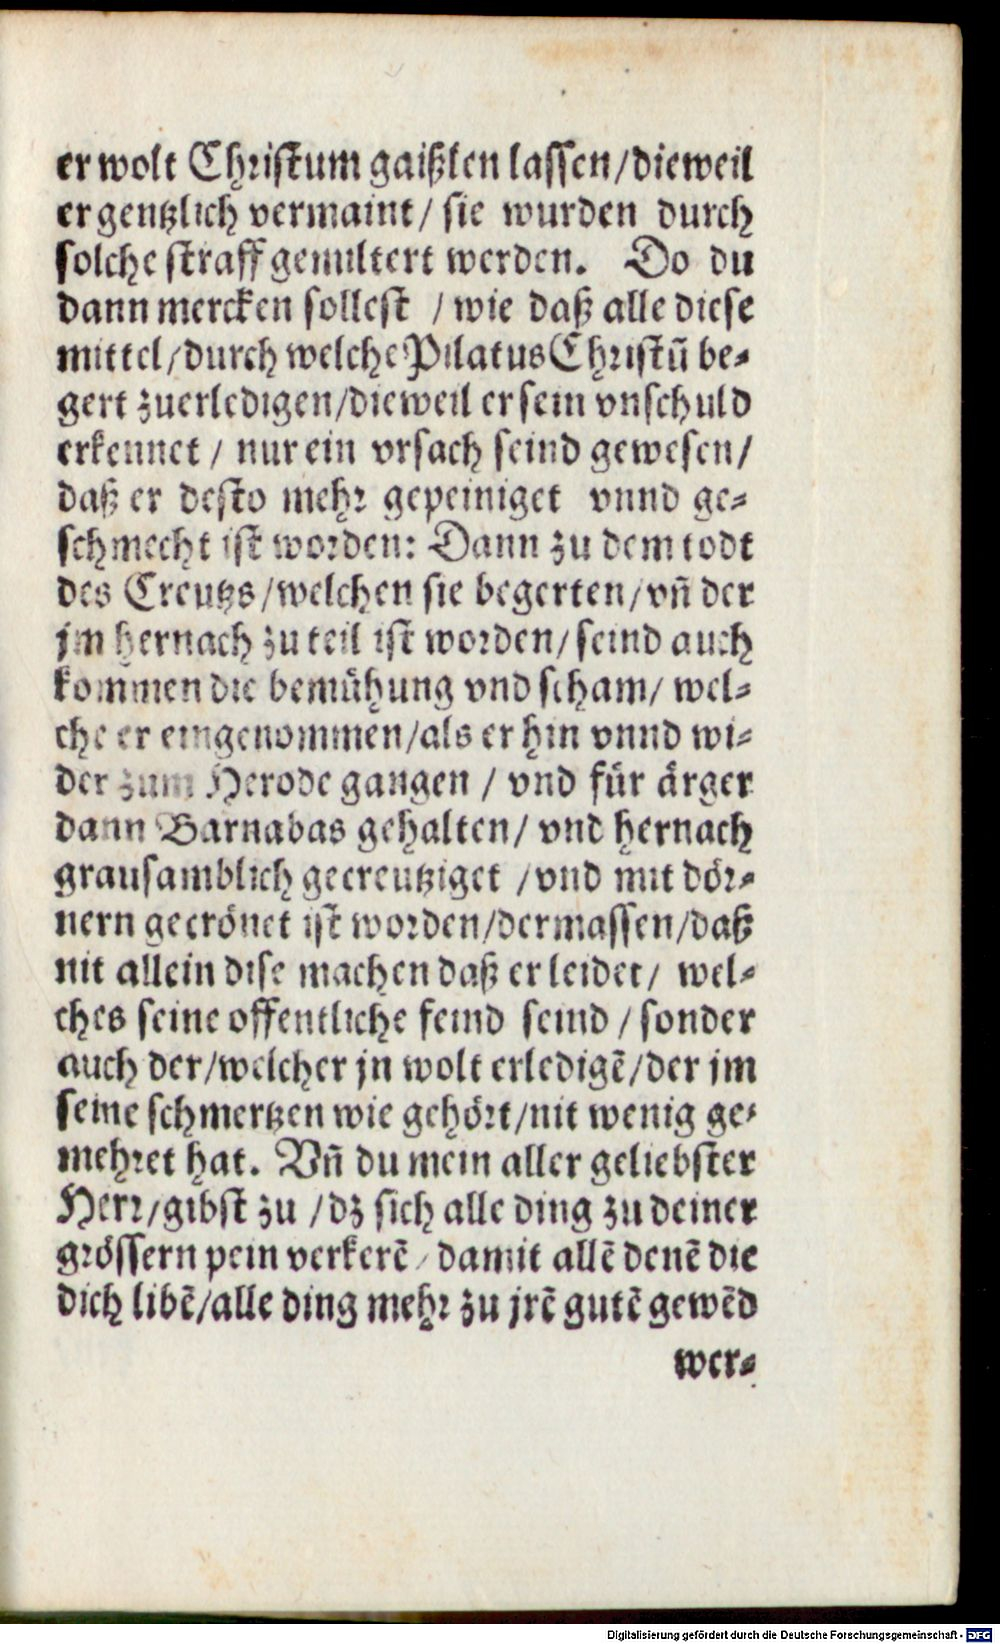 er wolt Christum gaißlen lassen/dieweil
er gentzlich vermaint/ sie wurden durch
solche straff gemiltert werden. Do du
dann mercken sollest / wie daß alle diese
mittel/durch welche Pilatus Christū be-
gert zuerledigen/dieweil er sein vnschuld
erkennet / nur ein vrsach seind gewesen/
daß er desto mehr gepeiniget vnnd ge-
schmecht ist worden: Dann zu dem todt
des Creutzs/welchen sie begerten/vñ der
jm hernach zu teil ist worden/seind auch
kommen die bemühung vnd scham/ wel-
che er eingenommen/als er hin vnnd wi-
der zum Herode gangen / vnd für ärger
dann Barnabas gehalten/ vnd hernach
grausamblich gecreutziget /vnd mit dör-
nern gecrönet ist worden/dermassen/daß
nit allein dise machen daß er leidet/ wel-
ches seine offentliche feind seind / sonder
auch der/welcher jn wolt erledigē/der jm
seine schmertzen wie gehört/nit wenig ge-
mehret hat. Vñ du mein aller geliebster
Herr/gibst zu /dz sich alle ding zu deiner
grössern pein verkerē/ damit allē denē die
dich libē/alle ding mehr zu jrē gutē gewēd
wer-
Digitalisierung gefördert durch die Deutsche Forschungsgemeinschaft - DFG